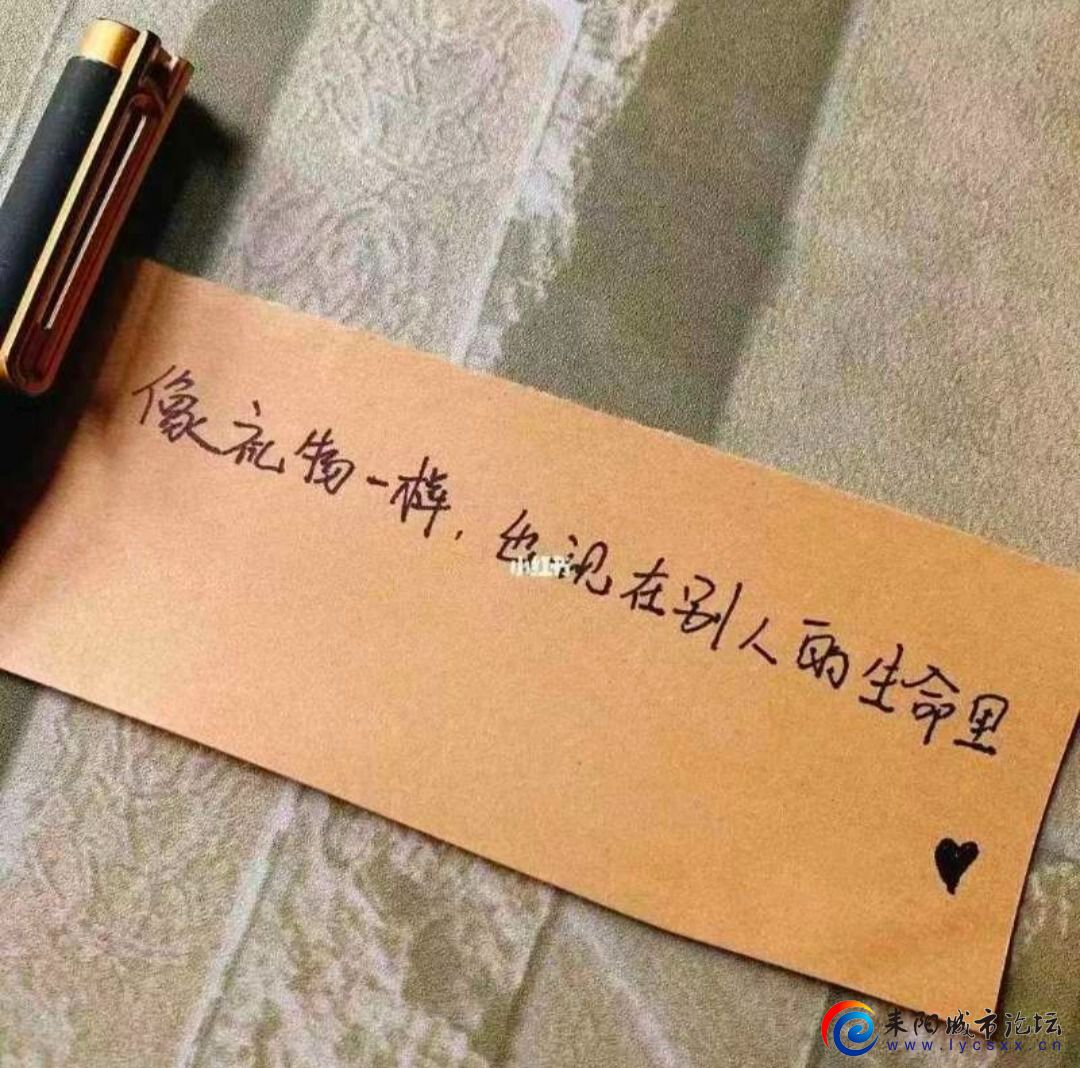 像礼物一样，出现在别人的生命里
小红书
耒阳城市论坛
www.lycsxx.cn